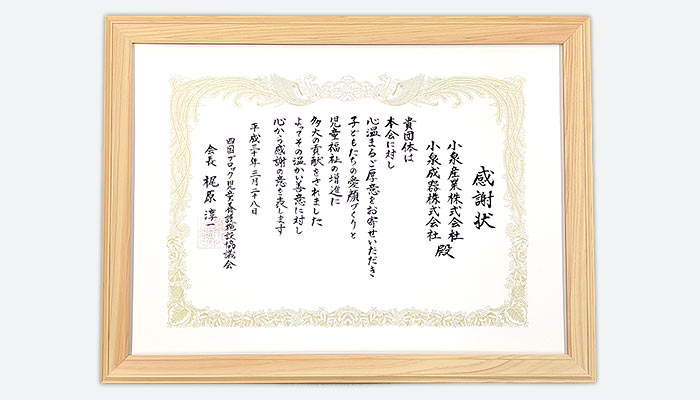 感謝状
小泉産業株式会社
小泉成器株式会社 殿
貴団体は
本会に対し
心温まるご厚意をお寄せいただき
子どもたちの笑顔づくりと
児童福祉の増進に
多大の貢献をされました
よってその温かい善意に対し
心から感謝の意を表します
平成三十年 三月二十八日
四国ブロック児童養護施設協議会
会長 梶原 淳一